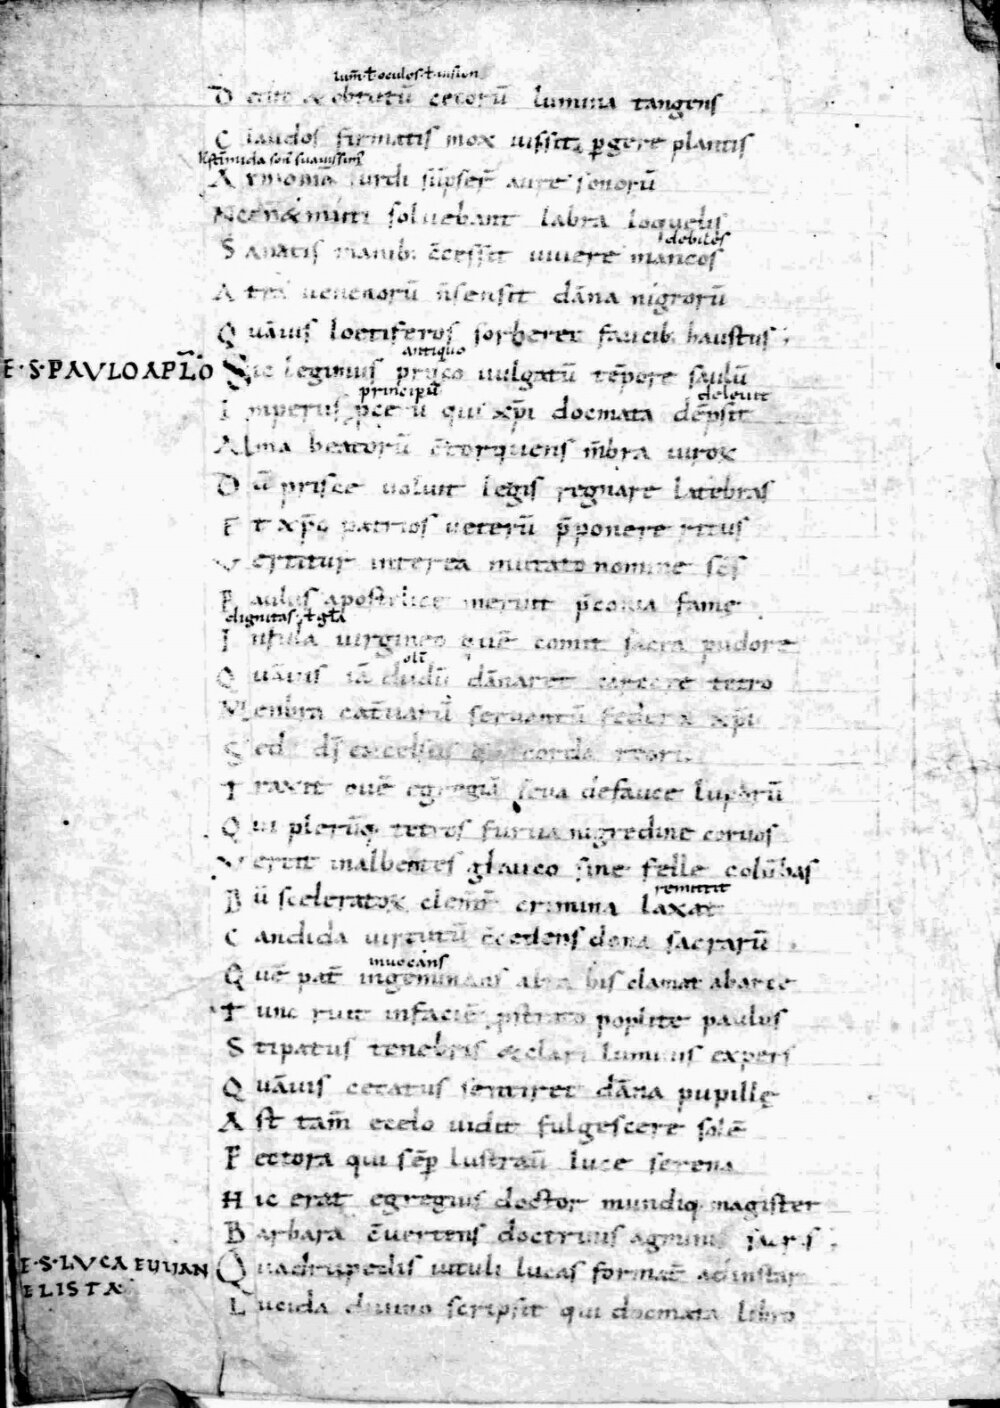 lumina tangens
C laudos firmatis mox iussit ꝑgere plantis
A aure sonorū
soluebant labra loquelis
debiles
S anatis manib; c̄cessit uiuere mancos
A tra uenenorū n̄ sensit dāna nigrorū
Q uāuis loetiferos sorberet faucib; haustus;
antiquo
E·S·PAVLO APL̄O S ic legimus prisco uulgatū tēpore saulū
principū deleuit
I mperiis ꝓcerū qui xp̄i docmata dēpsit
A lma beatorū c̄torquens m̄bra uirox
D ū prisce uoluit legis regnare latebras
E t xp̄o patrios ueterū p̄ponere ritus
V ertitur interea mutato nomine sc̄s
P aulus apostolice meruit p̄conia fame
dignitas ł gl̄a
I nfula uirgineo quē comit sacra pudore
olī
Q uāuis iā dudū dānaret carcere tetro
M enbra cat̄uarū seruantū federa xp̄i
S ed d̄s excelsus
T raxit ouē egregiā seua de fauce luporū
Q ui plerūq; tetros furua nigredine coruos
V ertit in albentes glauco sine felle colūbas
remittit
D ū sceleratox clem̄t crimina laxat
C andida uirtutū c̄cedens dona sacrarū
inuocans
Q uē pat̄ ingeminans bis clamat ab arce
T unc ruit in faciē ꝓstrato poplite paulus
S tipatus tenebris & clari luminis expers
Q uāuis cecatus sentiret dāna pupillę
A st tam̄ e celo uidit fulgescere solē
P ectora qui sēꝑ lustrauit luce serena
H ic erat egregius doctor mundiq; magister
B arbara c̄uertens doctrinis agmina sacris;
E·S·LVCA EVVAN
ELISTA
Q uadrupedis uituli lucas format̄ ad instar
L ucida diuino scripsit qui docmata libro